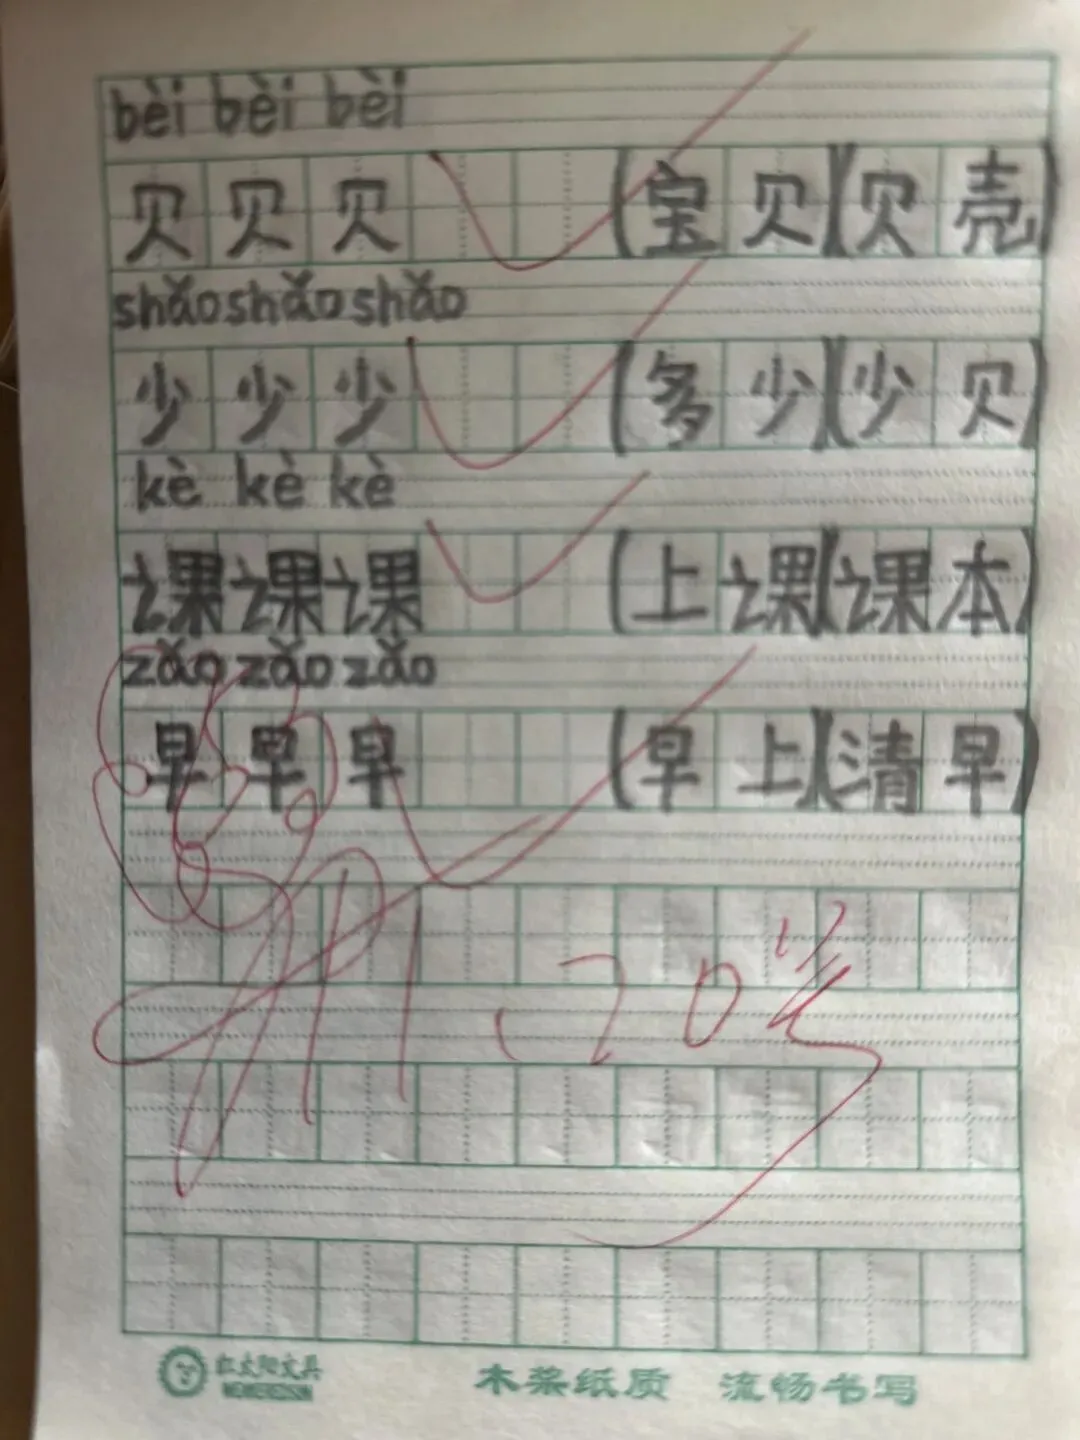 bèi bèi bèi
贝贝贝 (宝贝)(贝壳)
shǎo shǎo shǎo
少少少 (多少)(少贝)
kè kè kè
课课课 (上课)(课本)
zǎo zǎo zǎo
早早早 (早上)(清早)
11.20
红太阳文具
木浆纸质 流畅书写